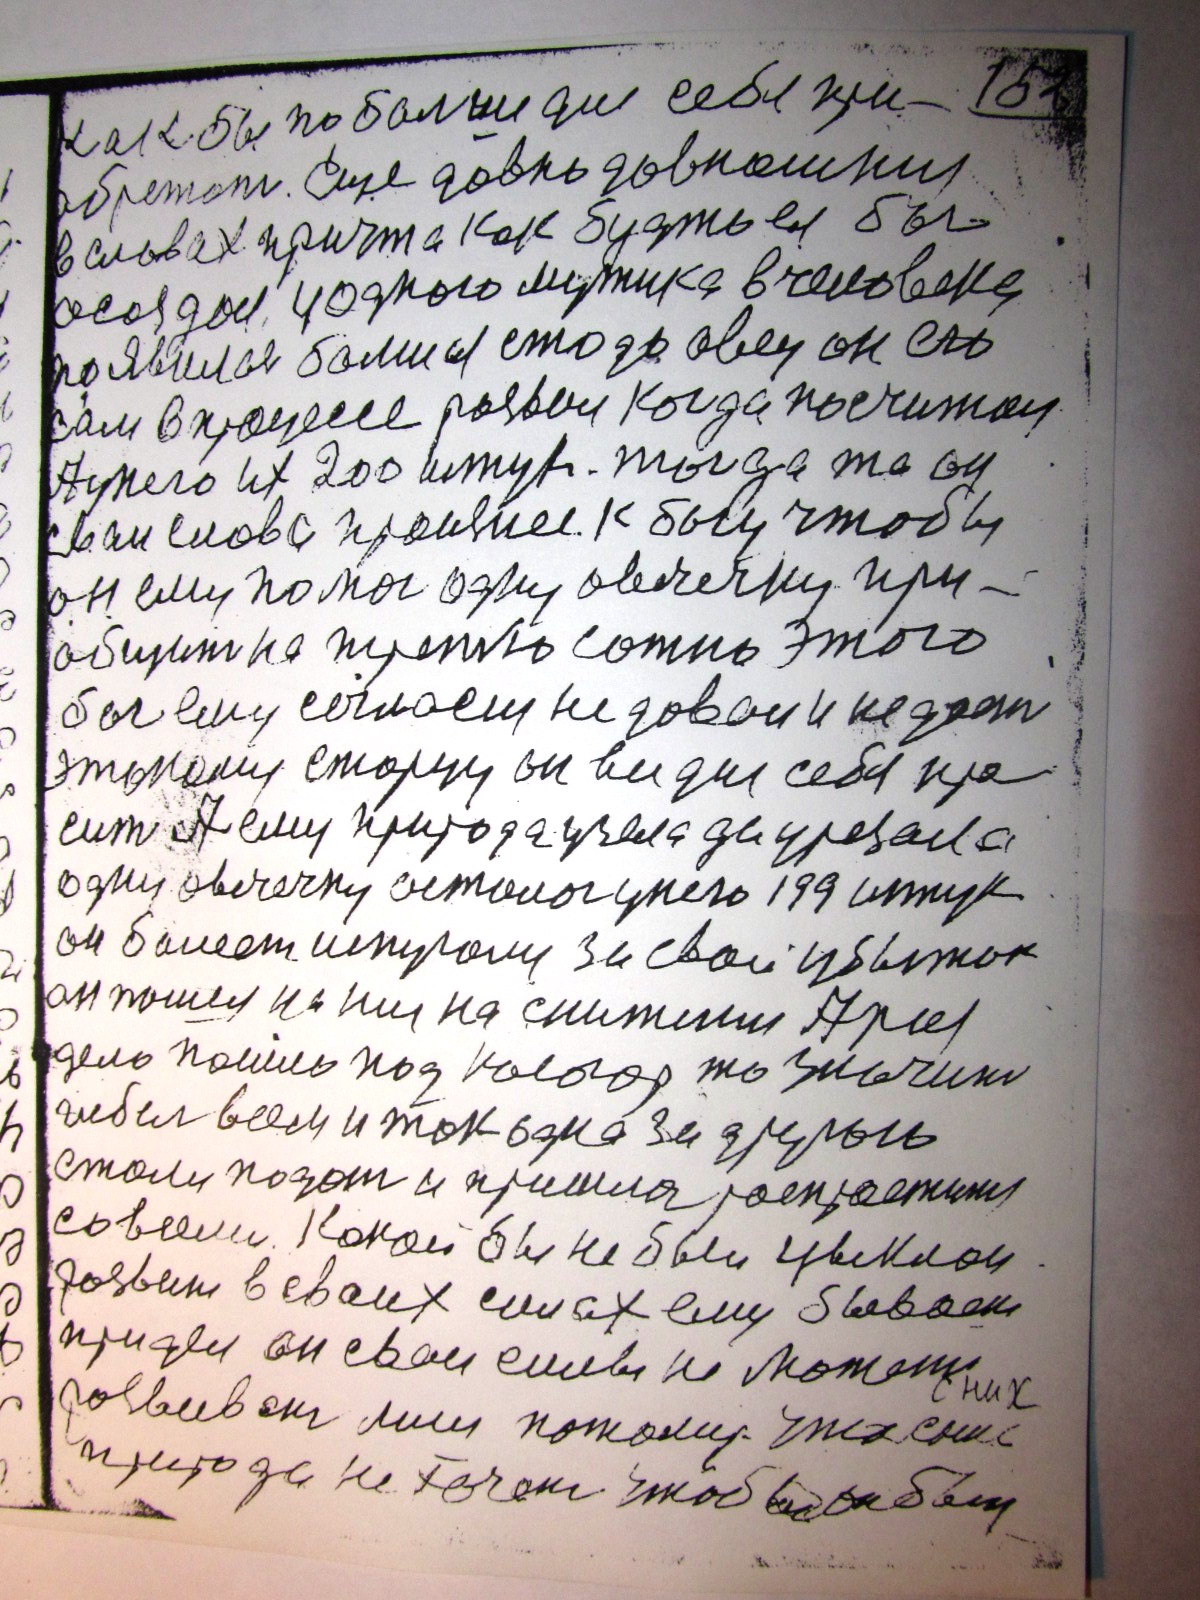 152
как бы по больши для себя при-
обретат. Еще довно довношния
в словах притча как будто ея бы
осоздал, у одного мужика в человека
появился большы стодо овец он его
сам в процессе развил когда посчитал
А у него их 200 штук. тогда жа он
сваи слова произнес. к богу чтобы
он ему помог одну овечечку при-
общит на третью сотню этого
бог ему согласия не довал и не дает
этакому старцу он вседля себя про
сит А ему природа узела да урезала
одну овечечку осталос у него 199 штук
он болеет шкурому за свой убыток
он пошел на них на снижения А раз
дело пошло под косогор то значит
гибел всем и так одна за другою
стали подат и пришлос роспростися
со всеми. Какой бы не был циклон
розвит в своих силах ему бывает
придел он свои силы не может
розвиват или потому что сами
с них
природа не хочет чтобы он был